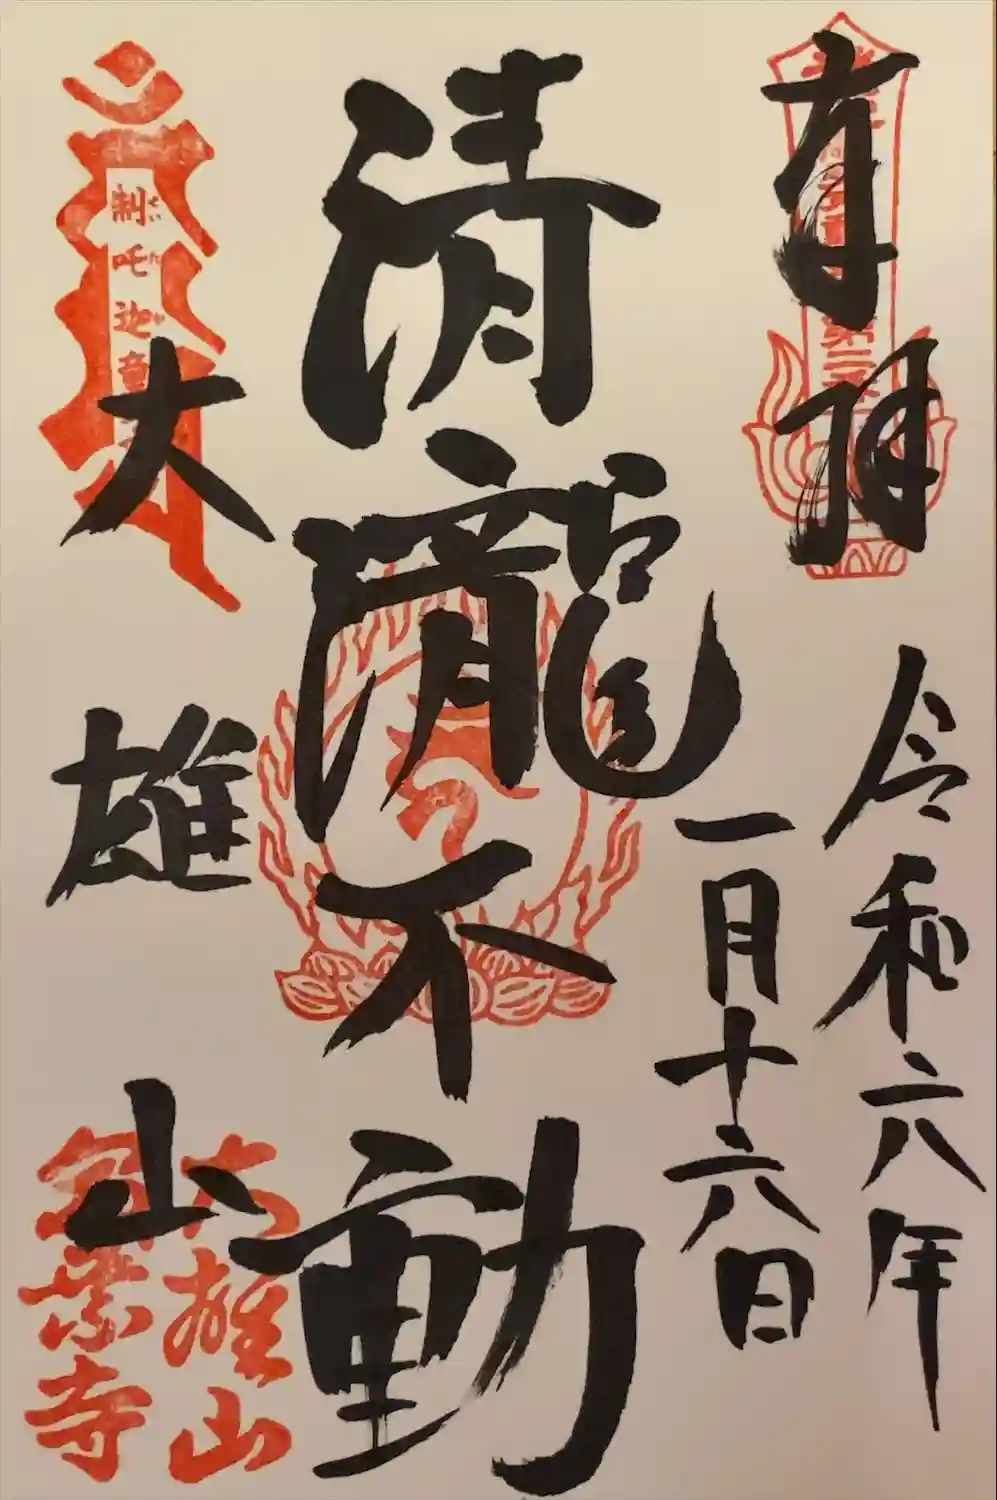 奉拝
第二
令和六年
一月十六日
清瀧不動
制吒迦童
せい た か
大雄山
大雄山
最乗寺